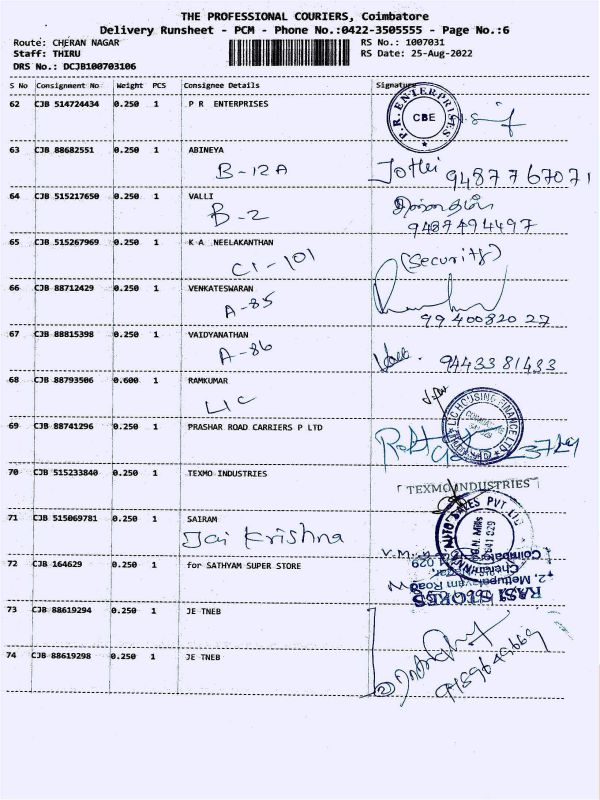 THE PROFESSIONAL COURIERS, Coimbatore
Delivery Runsheet - PCM - Phone No.:0422-3505555 - Page No.:6
Route: CHERAN NAGAR RS No.: 1007031
Staff: THIRU RS Date: 25-Aug-2022
DRS No.: DCJB100703106
S No Consignment No Weight PCS Consignee Details Signature
62 CJB 514724434 0.250 1 P R ENTERPRISES
P.R. ENTERPRISES
CBE
63 CJB 88682551 0.250 1 ABINEYA
B-12A Jothi 9487767071
64 CJB 515217650 0.250 1 VALLI
B-2
9487494497
65 CJB 515267969 0.250 1 K A NEELAKANTHAN
C1-101 (Security)
66 CJB 88712429 0.250 1 VENKATESWARAN
A-85
9940082027
67 CJB 88815398 0.250 1 VAIDYANATHAN
A-86 9443381433
68 CJB 88793506 0.600 1 RAMKUMAR
LIC
LIC HOUSING FINANCE LTD
69 CJB 88741296 0.250 1 PRASHAR ROAD CARRIERS P LTD
70 CJB 515233840 0.250 1 TEXMO INDUSTRIES
TEXMO INDUSTRIES
71 CJB 515069781 0.250 1 SAIRAM
Jai Krishna
PVT LTD
G.N. Mills
641 029
72 CJB 164629 0.250 1 for SATHYAM SUPER STORE
RASI STORES
*2, Mettupalayam Road
73 CJB 88619294 0.250 1 JE TNEB
74 CJB 88619298 0.250 1 JE TNEB